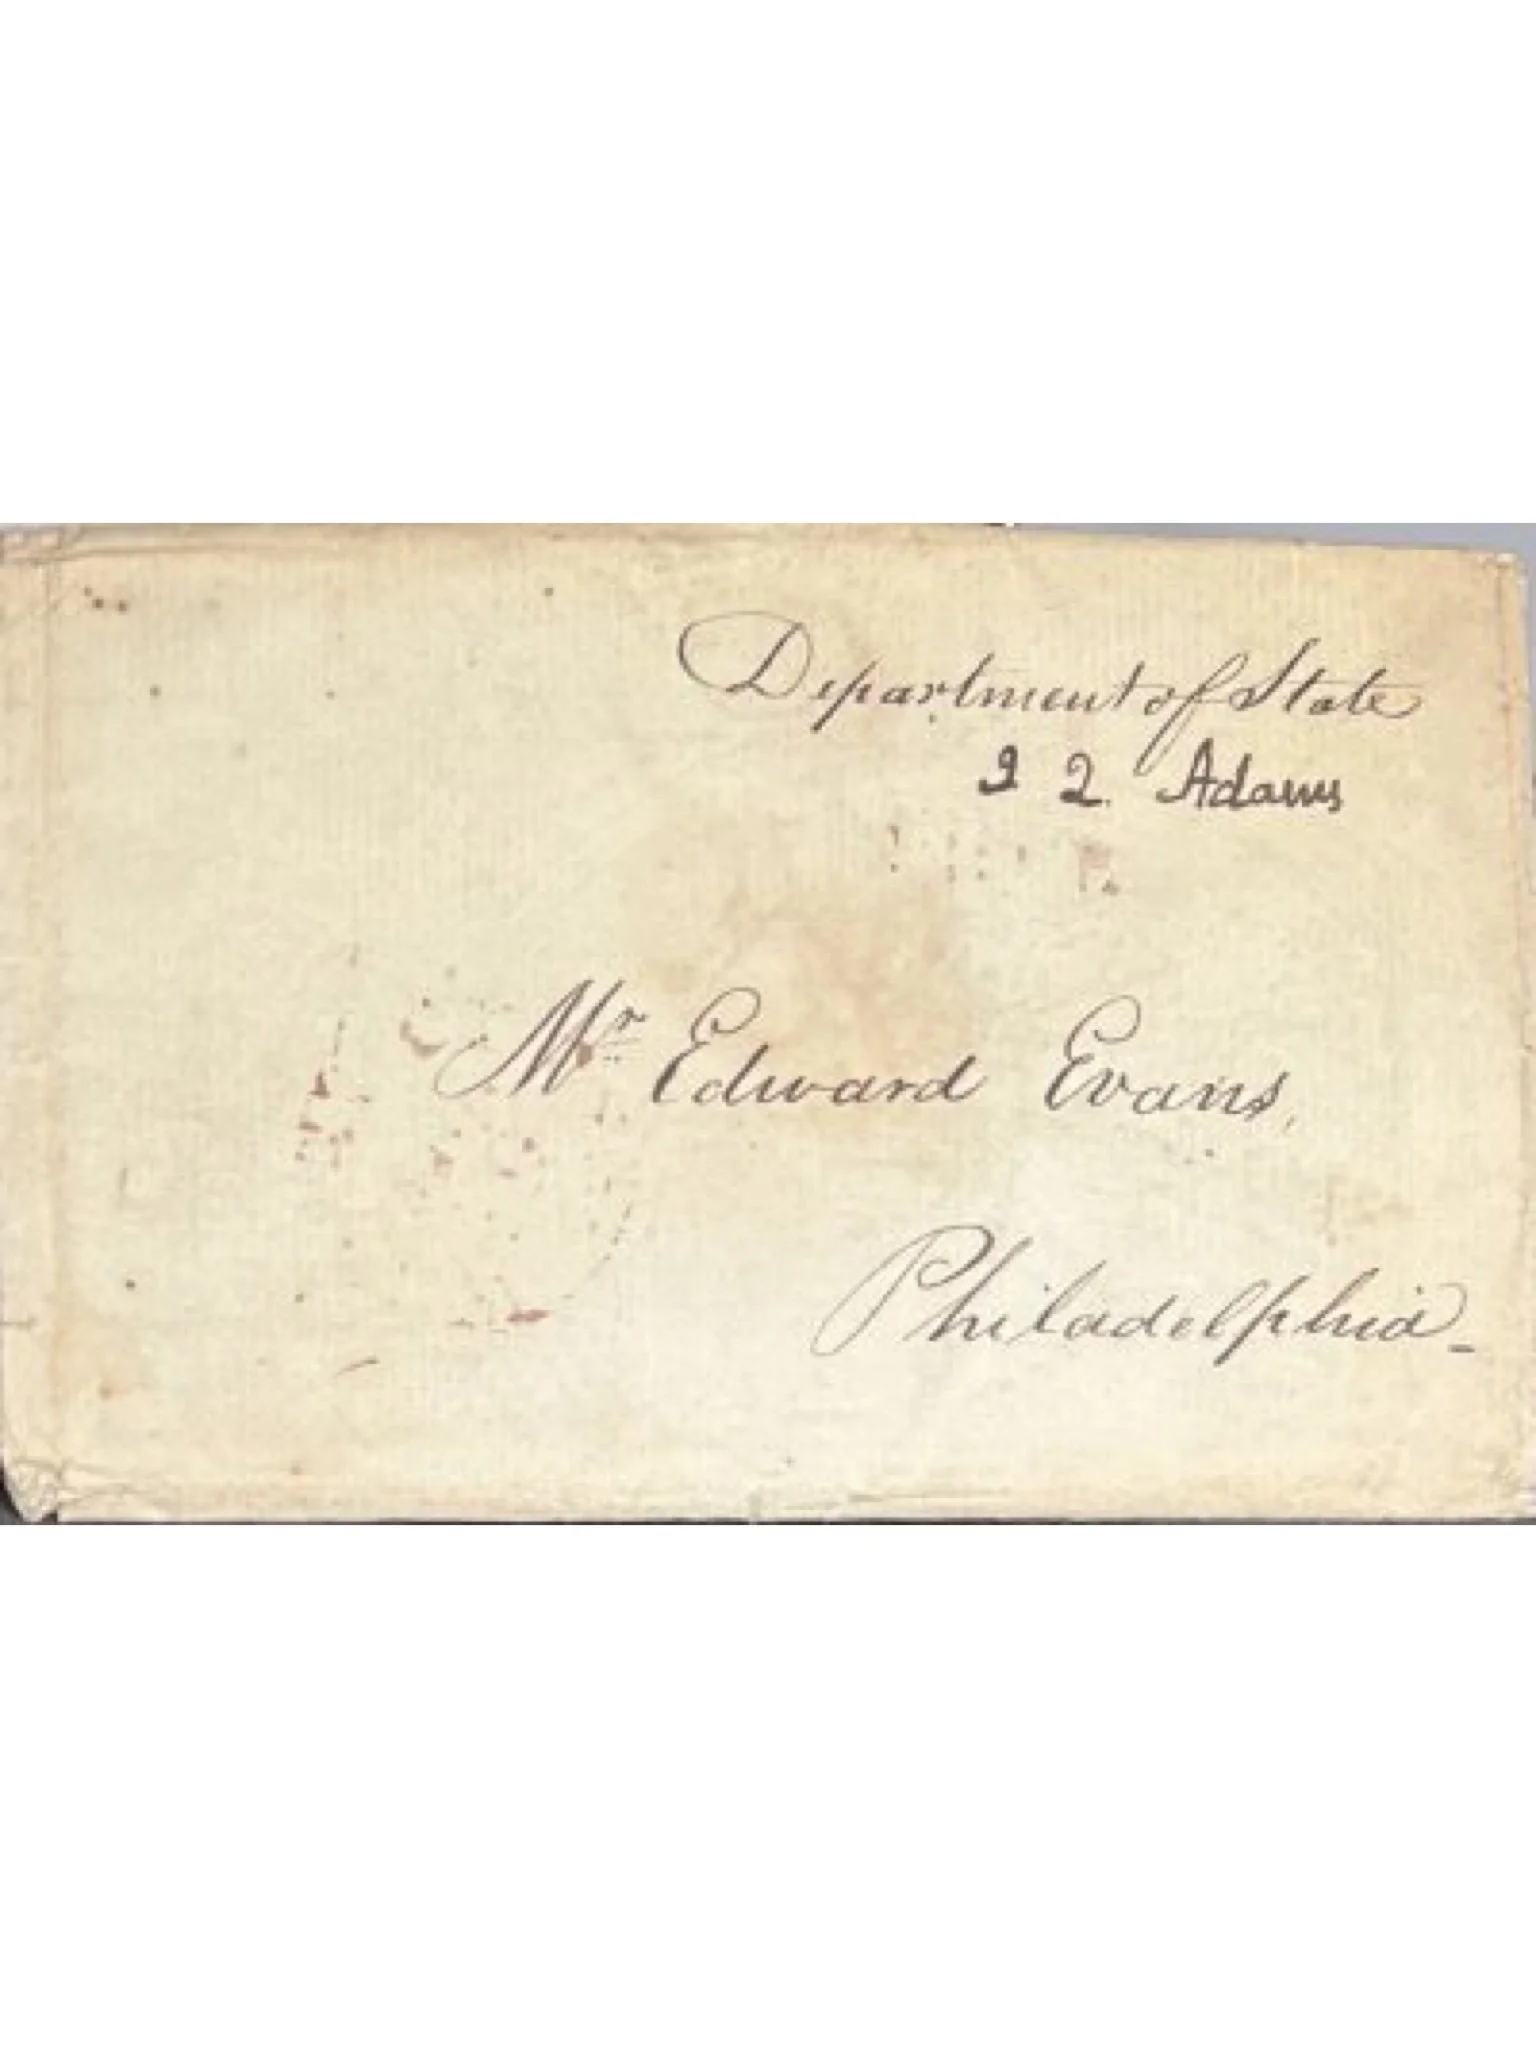 Department of State
J Q. Adams
Mr Edward Evans,
Philadelphia_